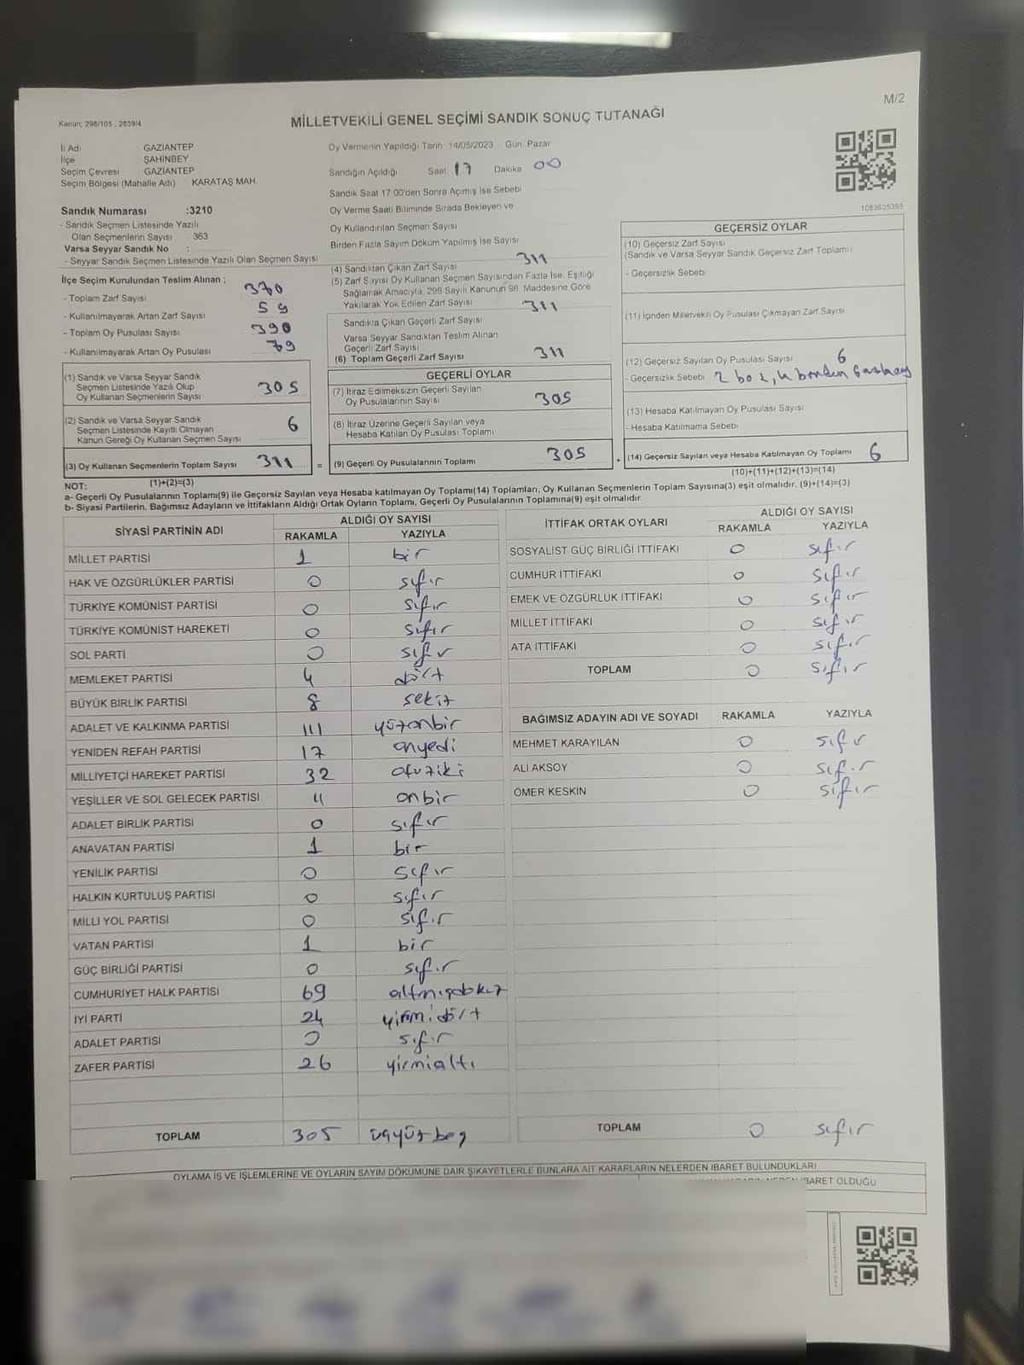 M/2
Kanun: 298/105 , 2839/4
MİLLETVEKİLİ GENEL SEÇİMİ SANDIK SONUÇ TUTANAĞI
İl Adı GAZİANTEP
İlçe ŞAHİNBEY
Seçim Çevresi GAZİANTEP
Seçim Bölgesi (Mahalle Adı) KARATAŞ MAH.
Sandık Numarası :3210
- Sandık Seçmen Listesinde Yazılı
Olan Seçmenlerin Sayısı 363
Varsa Seyyar Sandık No :
- Seyyar Sandık Seçmen Listesinde Yazılı Olan Seçmen Sayısı
İlçe Seçim Kurulundan Teslim Alınan ;
- Toplam Zarf Sayısı 370
- Kullanılmayarak Artan Zarf Sayısı 59
- Toplam Oy Pusulası Sayısı 390
- Kullanılmayarak Artan Oy Pusulası 79
(1) Sandık ve Varsa Seyyar Sandık
Seçmen Listesinde Yazılı Olup
Oy Kullanan Seçmenlerin Sayısı 305
(2) Sandık ve Varsa Seyyar Sandık
Seçmen Listesinde Kayıtlı Olmayan
Kanun Gereği Oy Kullanan Seçmen Sayısı 6
(3) Oy Kullanan Seçmenlerin Toplam Sayısı 311
(1)+(2)=(3)
Oy Vermenin Yapıldığı Tarih 14/05/2023 Gün Pazar
Sandığın Açıldığı Saat 17 Dakika 00
Sandık Saat 17:00'den Sonra Açılmış İse Sebebi
Oy Verme Saati Bitiminde Sırada Bekleyen ve
Oy Kullandırılan Seçmen Sayısı
Birden Fazla Sayım Döküm Yapılmış İse Sayısı
(4) Sandıktan Çıkan Zarf Sayısı 311
(5) Zarf Sayısı Oy Kullanan Seçmen Sayısından Fazla İse, Eşitliği
Sağlamak Amacıyla, 298 Sayılı Kanunun 98. Maddesine Göre
Yakılarak Yok Edilen Zarf Sayısı
Sandıkta Çıkan Geçerli Zarf Sayısı 311
Varsa Seyyar Sandıktan Teslim Alınan
Geçerli Zarf Sayısı
(6) Toplam Geçerli Zarf Sayısı 311
GEÇERLİ OYLAR
(7) İtiraz Edilmeksizin Geçerli Sayılan
Oy Pusulalarının Sayısı 305
(8) İtiraz Üzerine Geçerli Sayılan veya
Hesaba Katılan Oy Pusulası Toplamı
= (9) Geçerli Oy Pusulalarının Toplamı 305
1082635395
GEÇERSİZ OYLAR
(10) Geçersiz Zarf Sayısı
(Sandık ve Varsa Seyyar Sandık Geçersiz Zarf Toplamı)
- Geçersizlik Sebebi
(11) İçinden Milletvekili Oy Pusulası Çıkmayan Zarf Sayısı
(12) Geçersiz Sayılan Oy Pusulası Sayısı 6
- Geçersizlik Sebebi 2 boş, 4 birden fazla
(13) Hesaba Katılmayan Oy Pusulası Sayısı
- Hesaba Katılmama Sebebi
(14) Geçersiz Sayılan veya Hesaba Katılmayan Oy Toplamı 6
(10)+(11)+(12)+(13)=(14)
NOT:
a- Geçerli Oy Pusulalarının Toplamı(9) ile Geçersiz Sayılan veya Hesaba katılmayan Oy Toplamı(14) Toplamları, Oy Kullanan Seçmenlerin Toplam Sayısına(3) eşit olmalıdır. (9)+(14)=(3)
b- Siyasi Partilerin, Bağımsız Adayların ve İttifakların Aldığı Ortak Oyların Toplamı, Geçerli Oy Pusulalarının Toplamına(9) eşit olmalıdır
SİYASİ PARTİNİN ADI ALDIĞI OY SAYISI
RAKAMLA YAZIYLA
MİLLET PARTİSİ 1 bir
HAK VE ÖZGÜRLÜKLER PARTİSİ 0 sıfır
TÜRKİYE KOMÜNİST PARTİSİ 0 sıfır
TÜRKİYE KOMÜNİST HAREKETİ 0 sıfır
SOL PARTİ 0 sıfır
MEMLEKET PARTİSİ 4 dört
BÜYÜK BİRLİK PARTİSİ 8 sekiz
ADALET VE KALKINMA PARTİSİ 111 yüzonbir
YENİDEN REFAH PARTİSİ 17 onyedi
MİLLİYETÇİ HAREKET PARTİSİ 32 otuziki
YEŞİLLER VE SOL GELECEK PARTİSİ 11 onbir
ADALET BİRLİK PARTİSİ 0 sıfır
ANAVATAN PARTİSİ 1 bir
YENİLİK PARTİSİ 0 sıfır
HALKIN KURTULUŞ PARTİSİ 0 sıfır
MİLLİ YOL PARTİSİ 0 sıfır
VATAN PARTİSİ 1 bir
GÜÇ BİRLİĞİ PARTİSİ 0 sıfır
CUMHURİYET HALK PARTİSİ 69 altmışdokuz
İYİ PARTİ 24 yirmidört
ADALET PARTİSİ 0 sıfır
ZAFER PARTİSİ 26 yirmialtı
TOPLAM 305 üçyüzbeş
İTTİFAK ORTAK OYLARI ALDIĞI OY SAYISI
RAKAMLA YAZIYLA
SOSYALİST GÜÇ BİRLİĞİ İTTİFAKI 0 sıfır
CUMHUR İTTİFAKI 0 sıfır
EMEK VE ÖZGÜRLÜK İTTİFAKI 0 sıfır
MİLLET İTTİFAKI 0 sıfır
ATA İTTİFAKI 0 sıfır
TOPLAM 0 sıfır
BAĞIMSIZ ADAYIN ADI VE SOYADI RAKAMLA YAZIYLA
MEHMET KARAYILAN 0 sıfır
ALİ AKSOY 0 sıfır
ÖMER KESKİN 0 sıfır
TOPLAM 0 sıfır
OYLAMA İŞ VE İŞLEMLERİNE VE OYLARIN SAYIM DÖKÜMÜNE DAİR ŞİKAYETLERLE BUNLARA AİT KARARLARIN NELERDEN İBARET BULUNDUKLARI
İBARET OLDUĞU